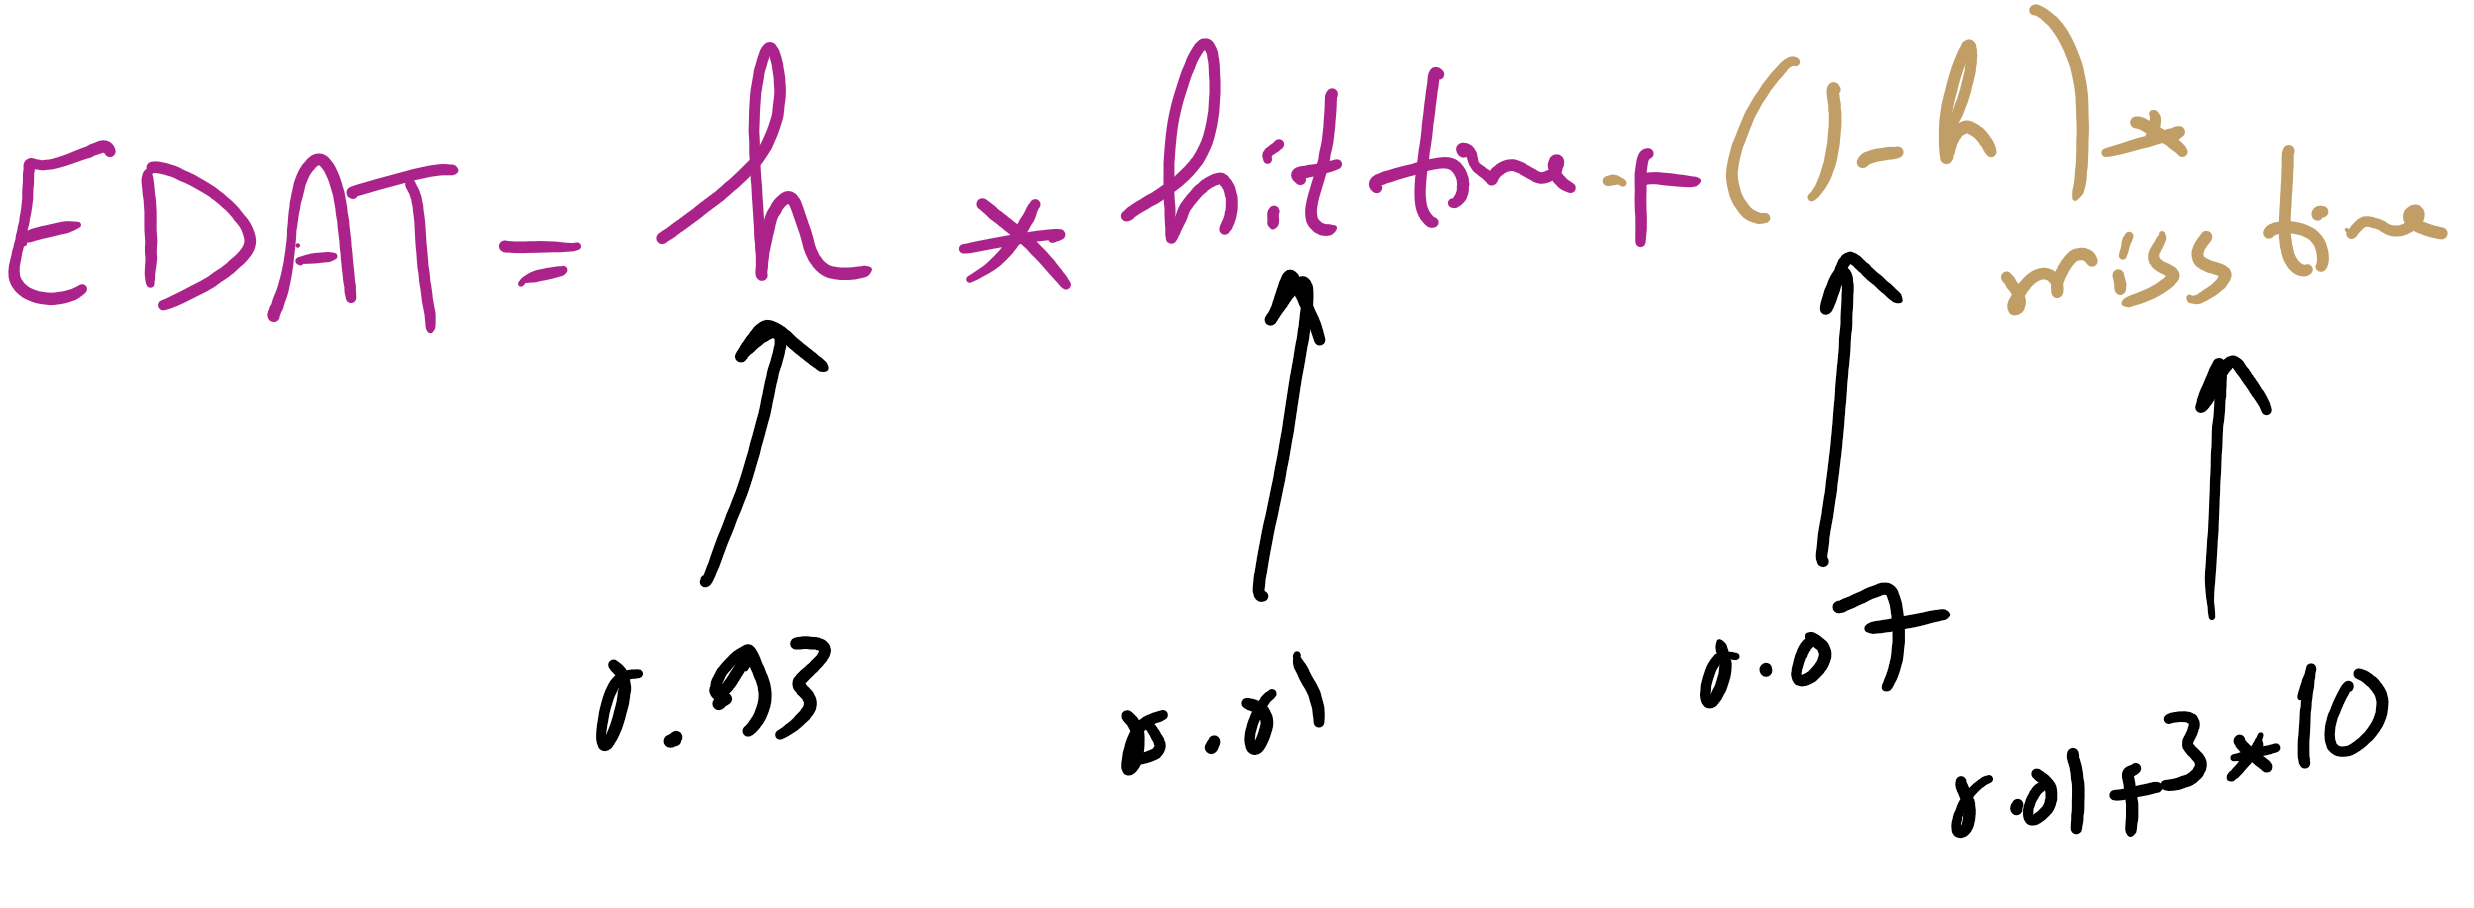 EDAT = h * hit time + (1-h) *
miss time
0.93 0.01 0.07 0.01+3*10